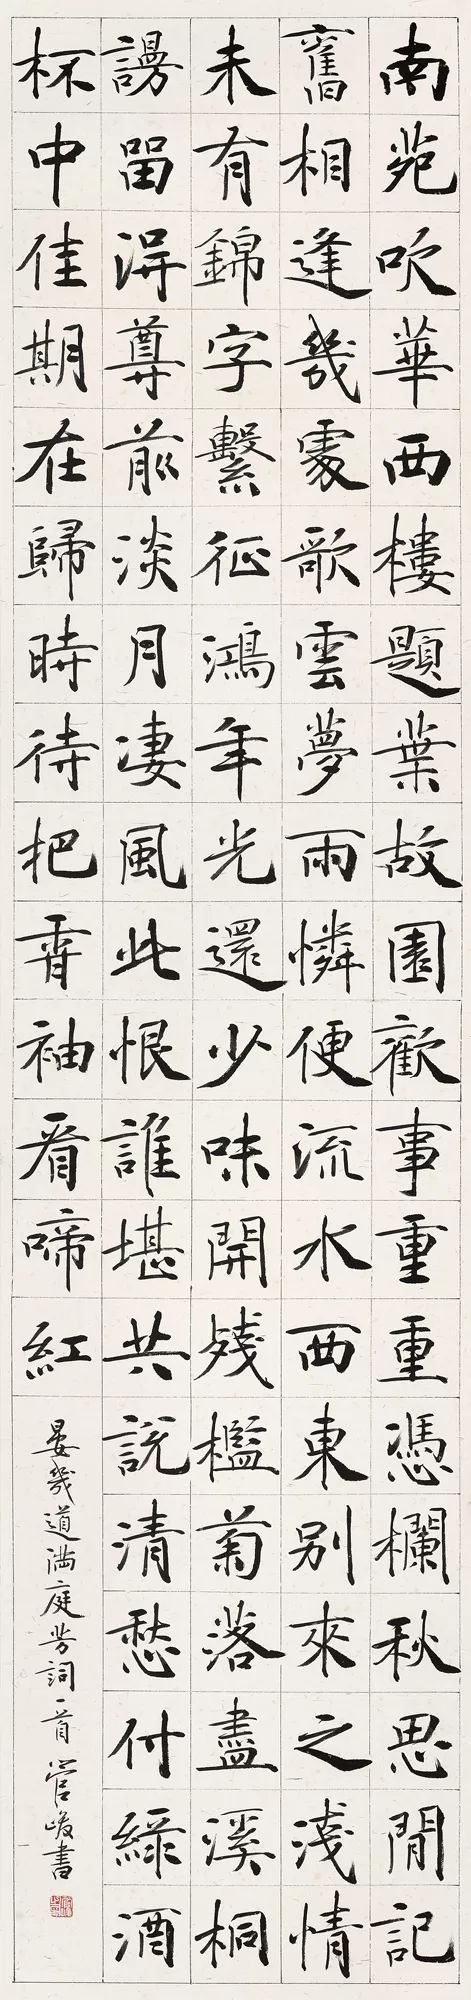 南苑吹華西樓題葉故園歡事重重憑欄秋思閒記
舊相逢幾處歌雲夢雨憐便流水西東別來之淺情
未有錦字繫征鴻年光還少味開殘檻菊落盡溪桐
謾留得尊前淡月凄風此恨誰堪共說清愁付綠酒
杯中佳期在歸時待把霄袖看啼紅
晏幾道滿庭芳詞一首 管峻書